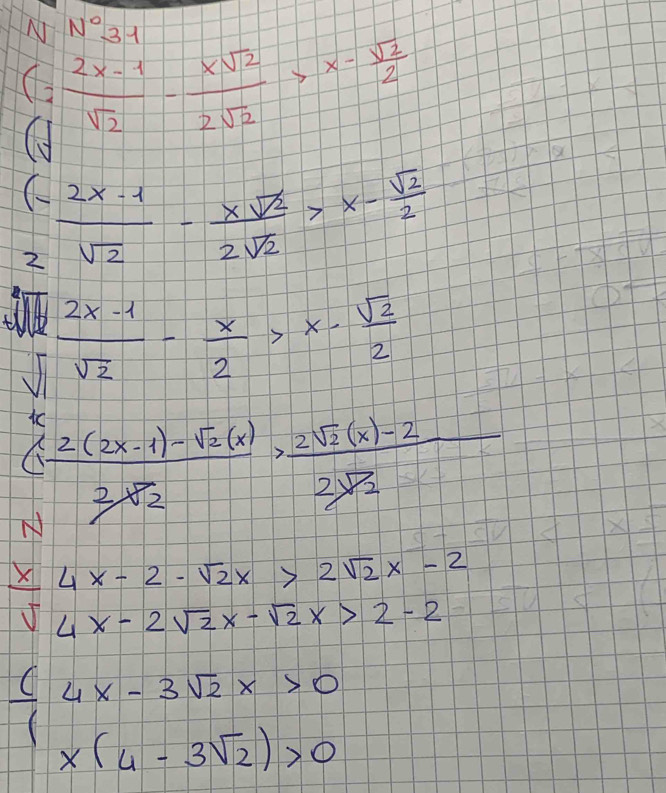 N°31
(2x-1)/√2 - (x√2)/(2√2) > x - √2/2
(2x-1)/√2 - (x√2)/(2√2) > x - √2/2
(2x-1)/√2 - x/2 > x - √2/2
(2(2x-1)-√2(x))/(2√2) > (2√2(x)-2)/(2√2)
4x-2-√2x > 2√2x-2
4x-2√2x-√2x>2-2
4x-3√2x>0
x(4-3√2)>0